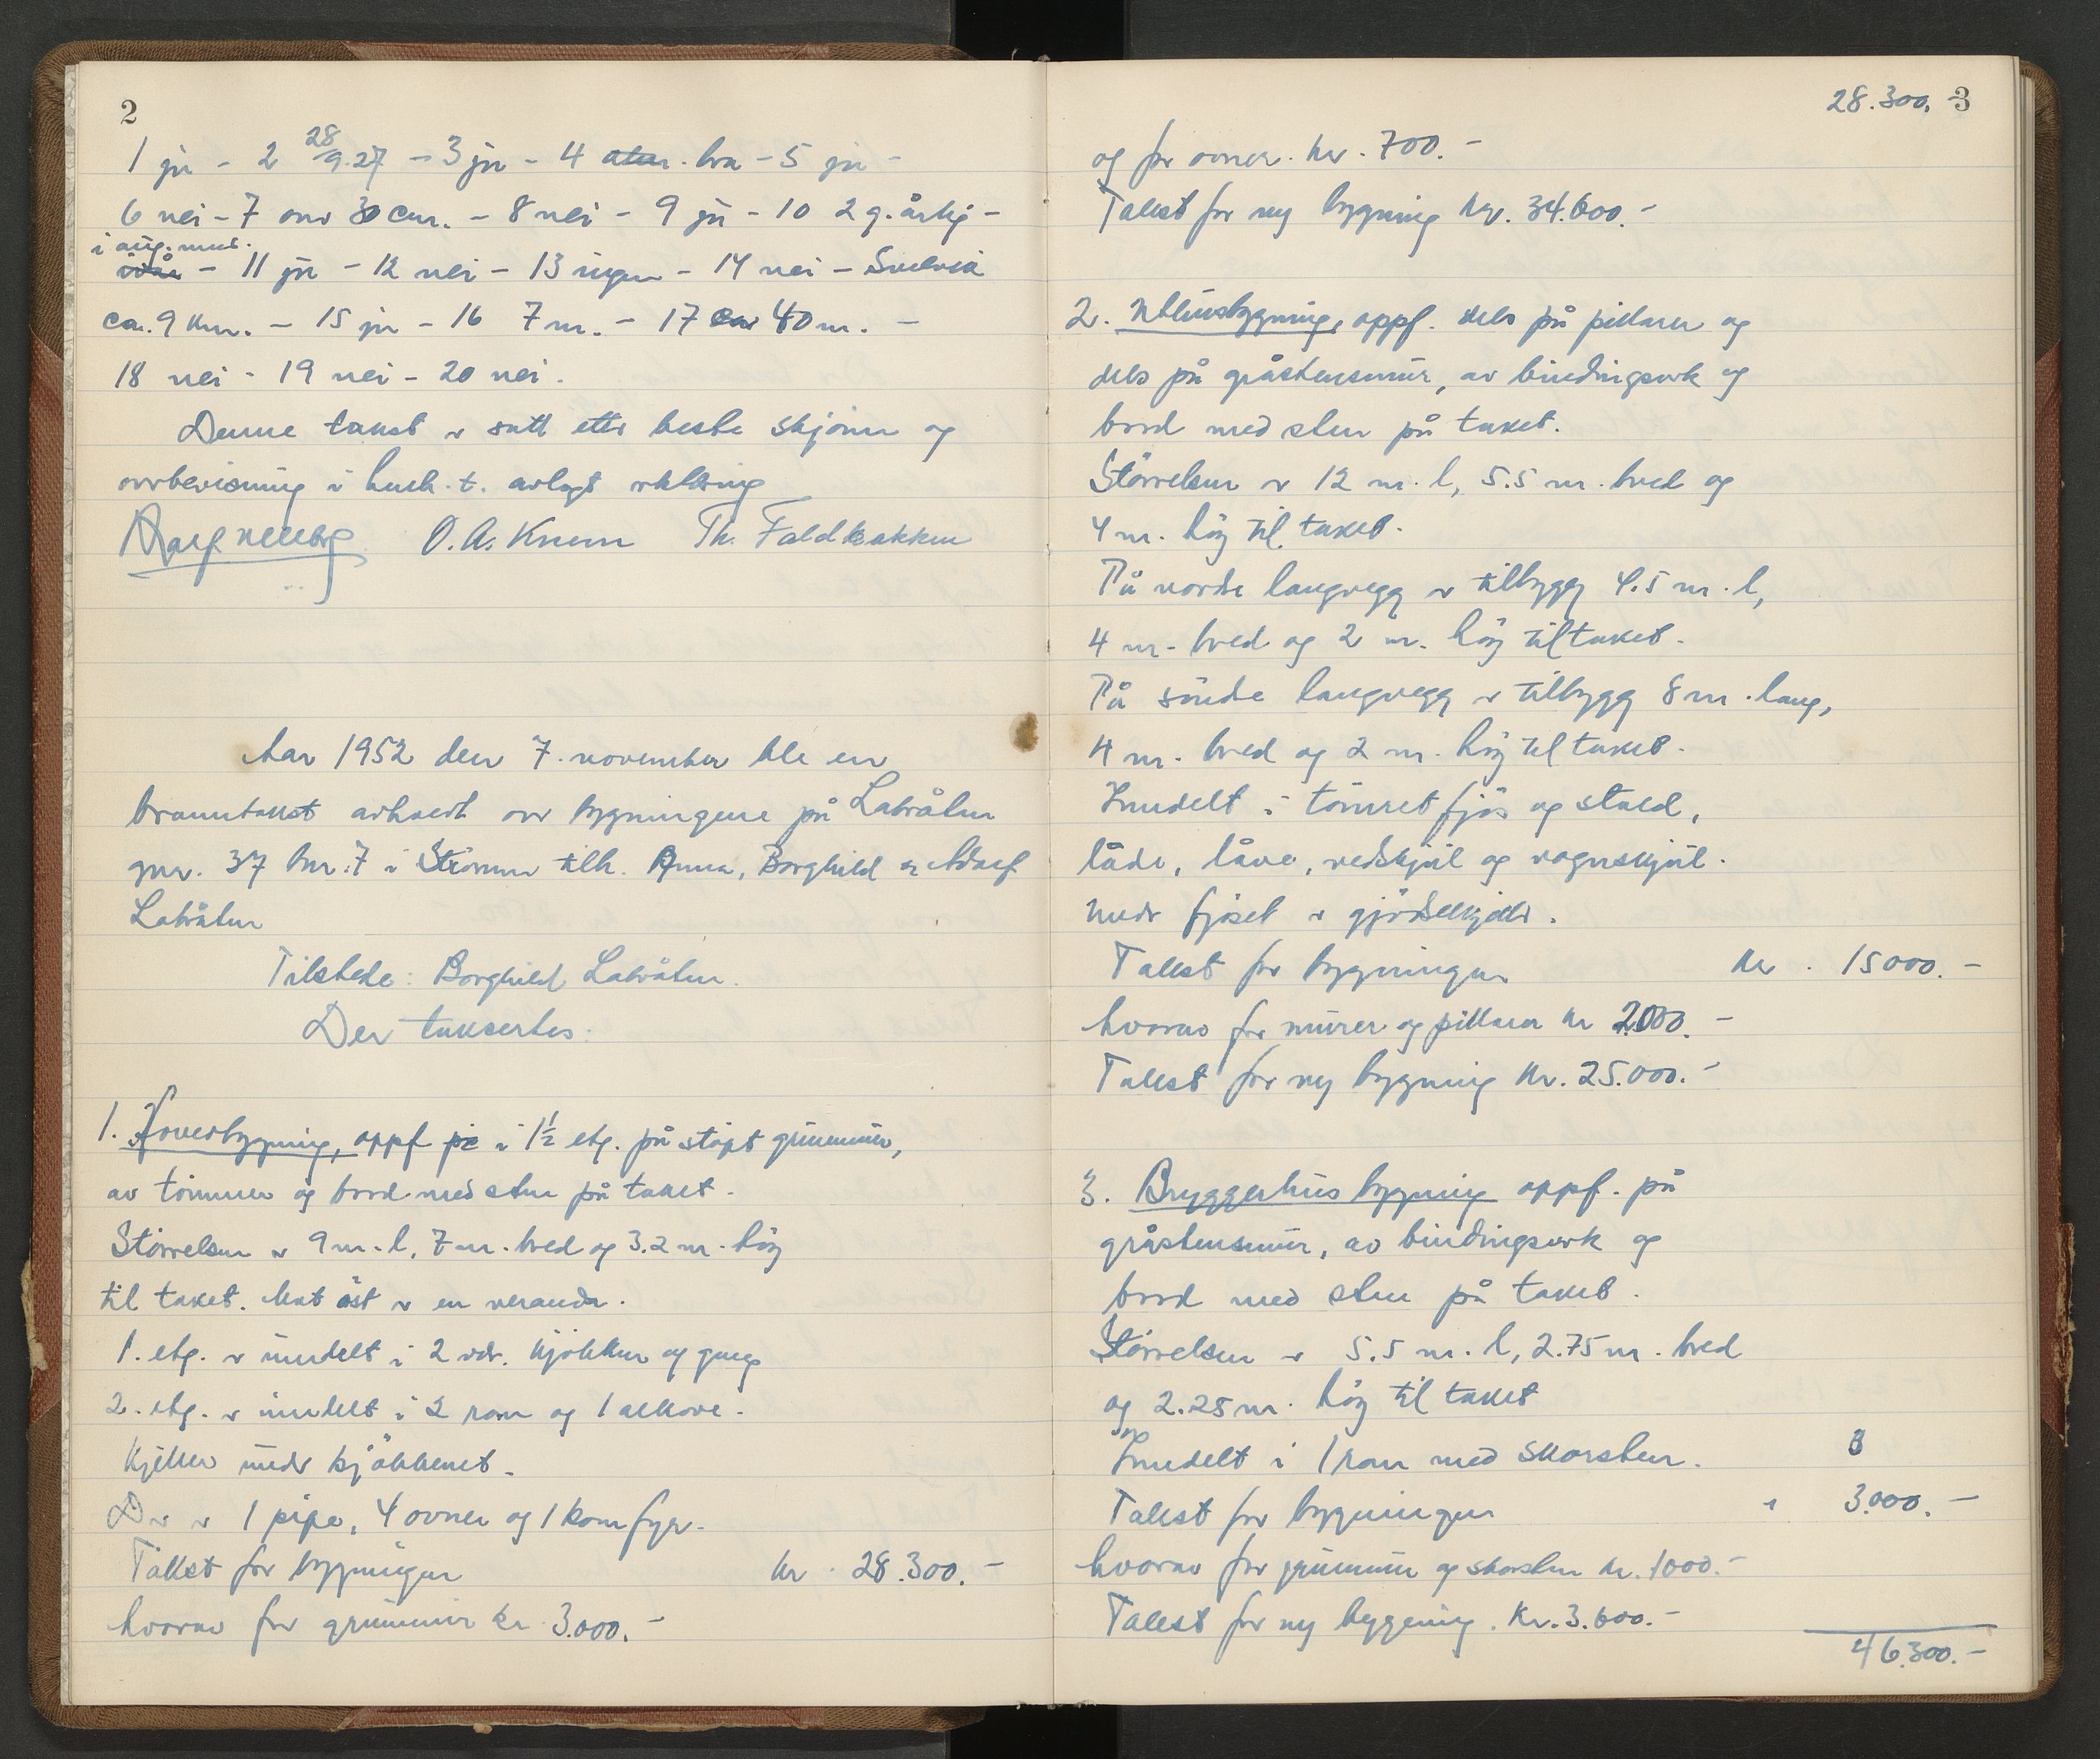 2
1 ja - 2 28/9.27 - 3 ja - 4 bra - 5 ja -
6 nei - 7 over 30 cm. - 8 nei - 9 ja - 10 2 g. årlig -
i aug. mnd.
- 11 ja - 12 nei - 13 ingen - 14 nei - Svelvik
ca. 9 km. - 15 ja - 16 7 m. - 17 40 m. -
18 nei - 19 nei - 20 nei.
Denne takst er satt etter beste skjønn og
overbevisning i henh. t. avlagt erklæring
O. A. Knem Th. Faldbakken
Aar 1952 den 7. november ble en
branntakst avholdt over bygningene på Labråten
gnr. 37 bnr. 7 i Strømm tilh. Anna, Borghild og Adolf
Labråten
Tilstede: Borghild Labråten.
Der taksertes:
1. Hovedbygning, oppf på i 1½ etg. på støpt grunnmur,
av tømmer og bord med sten på taket.
Størrelsen er 9 m. l, 7 m. bred og 3.2 m. høy
til taket. Mot øst er en veranda.
1. etg. er inndelt i 2 vær. kjøkken og gang
2. etg. er inndelt i 2 rom og 1 alkove.
Kjeller under kjøkkenet.
Der er 1 pipe, 4 ovner og 1 komfyr.
Takst for bygningen kr. 28.300. -
hvorav for grunnmur kr 3.000. -
28.300. 3
og for ovner. kr. 700. -
Takst for ny bygning kr. 34.600. -
2. Uthusbygning, oppf. dels på pillarer og
dels på gråstensmur, av bindingsverk og
bord med sten på taket.
Størrelsen er 12 m. l, 5.5 m. bred og
4 m. høy til taket.
På nordre langvegg er tilbygg 4.5 m. l,
4 m. bred og 2 m. høy til taket.
På søndre langvegg er tilbygg 8 m. lang,
4 m. bred og 2 m. høy til taket.
Inndelt i tømret fjøs og stald,
låde, låve, vedskjul og vognskjul.
Under fjøset er gjødselkjeller.
Takst for bygningen kr. 15000. -
hvorav for murer og pillarer kr 2000. -
Takst for ny bygning kr. 25.000. -
3. Bryggerhusbygning oppf. på
gråstensmur, av bindingsverk og
bord med sten på taket.
Størrelsen er 5.5 m. l, 2.75 m. bred
og 2.25 m. høy til taket
Inndelt i 1 rom med skorsten.
Takst for bygningen " 3.000. -
hvorav for grunnmur og skorsten kr. 1000. -
Takst for ny byggening. Kr. 3.600. -
46.300. -